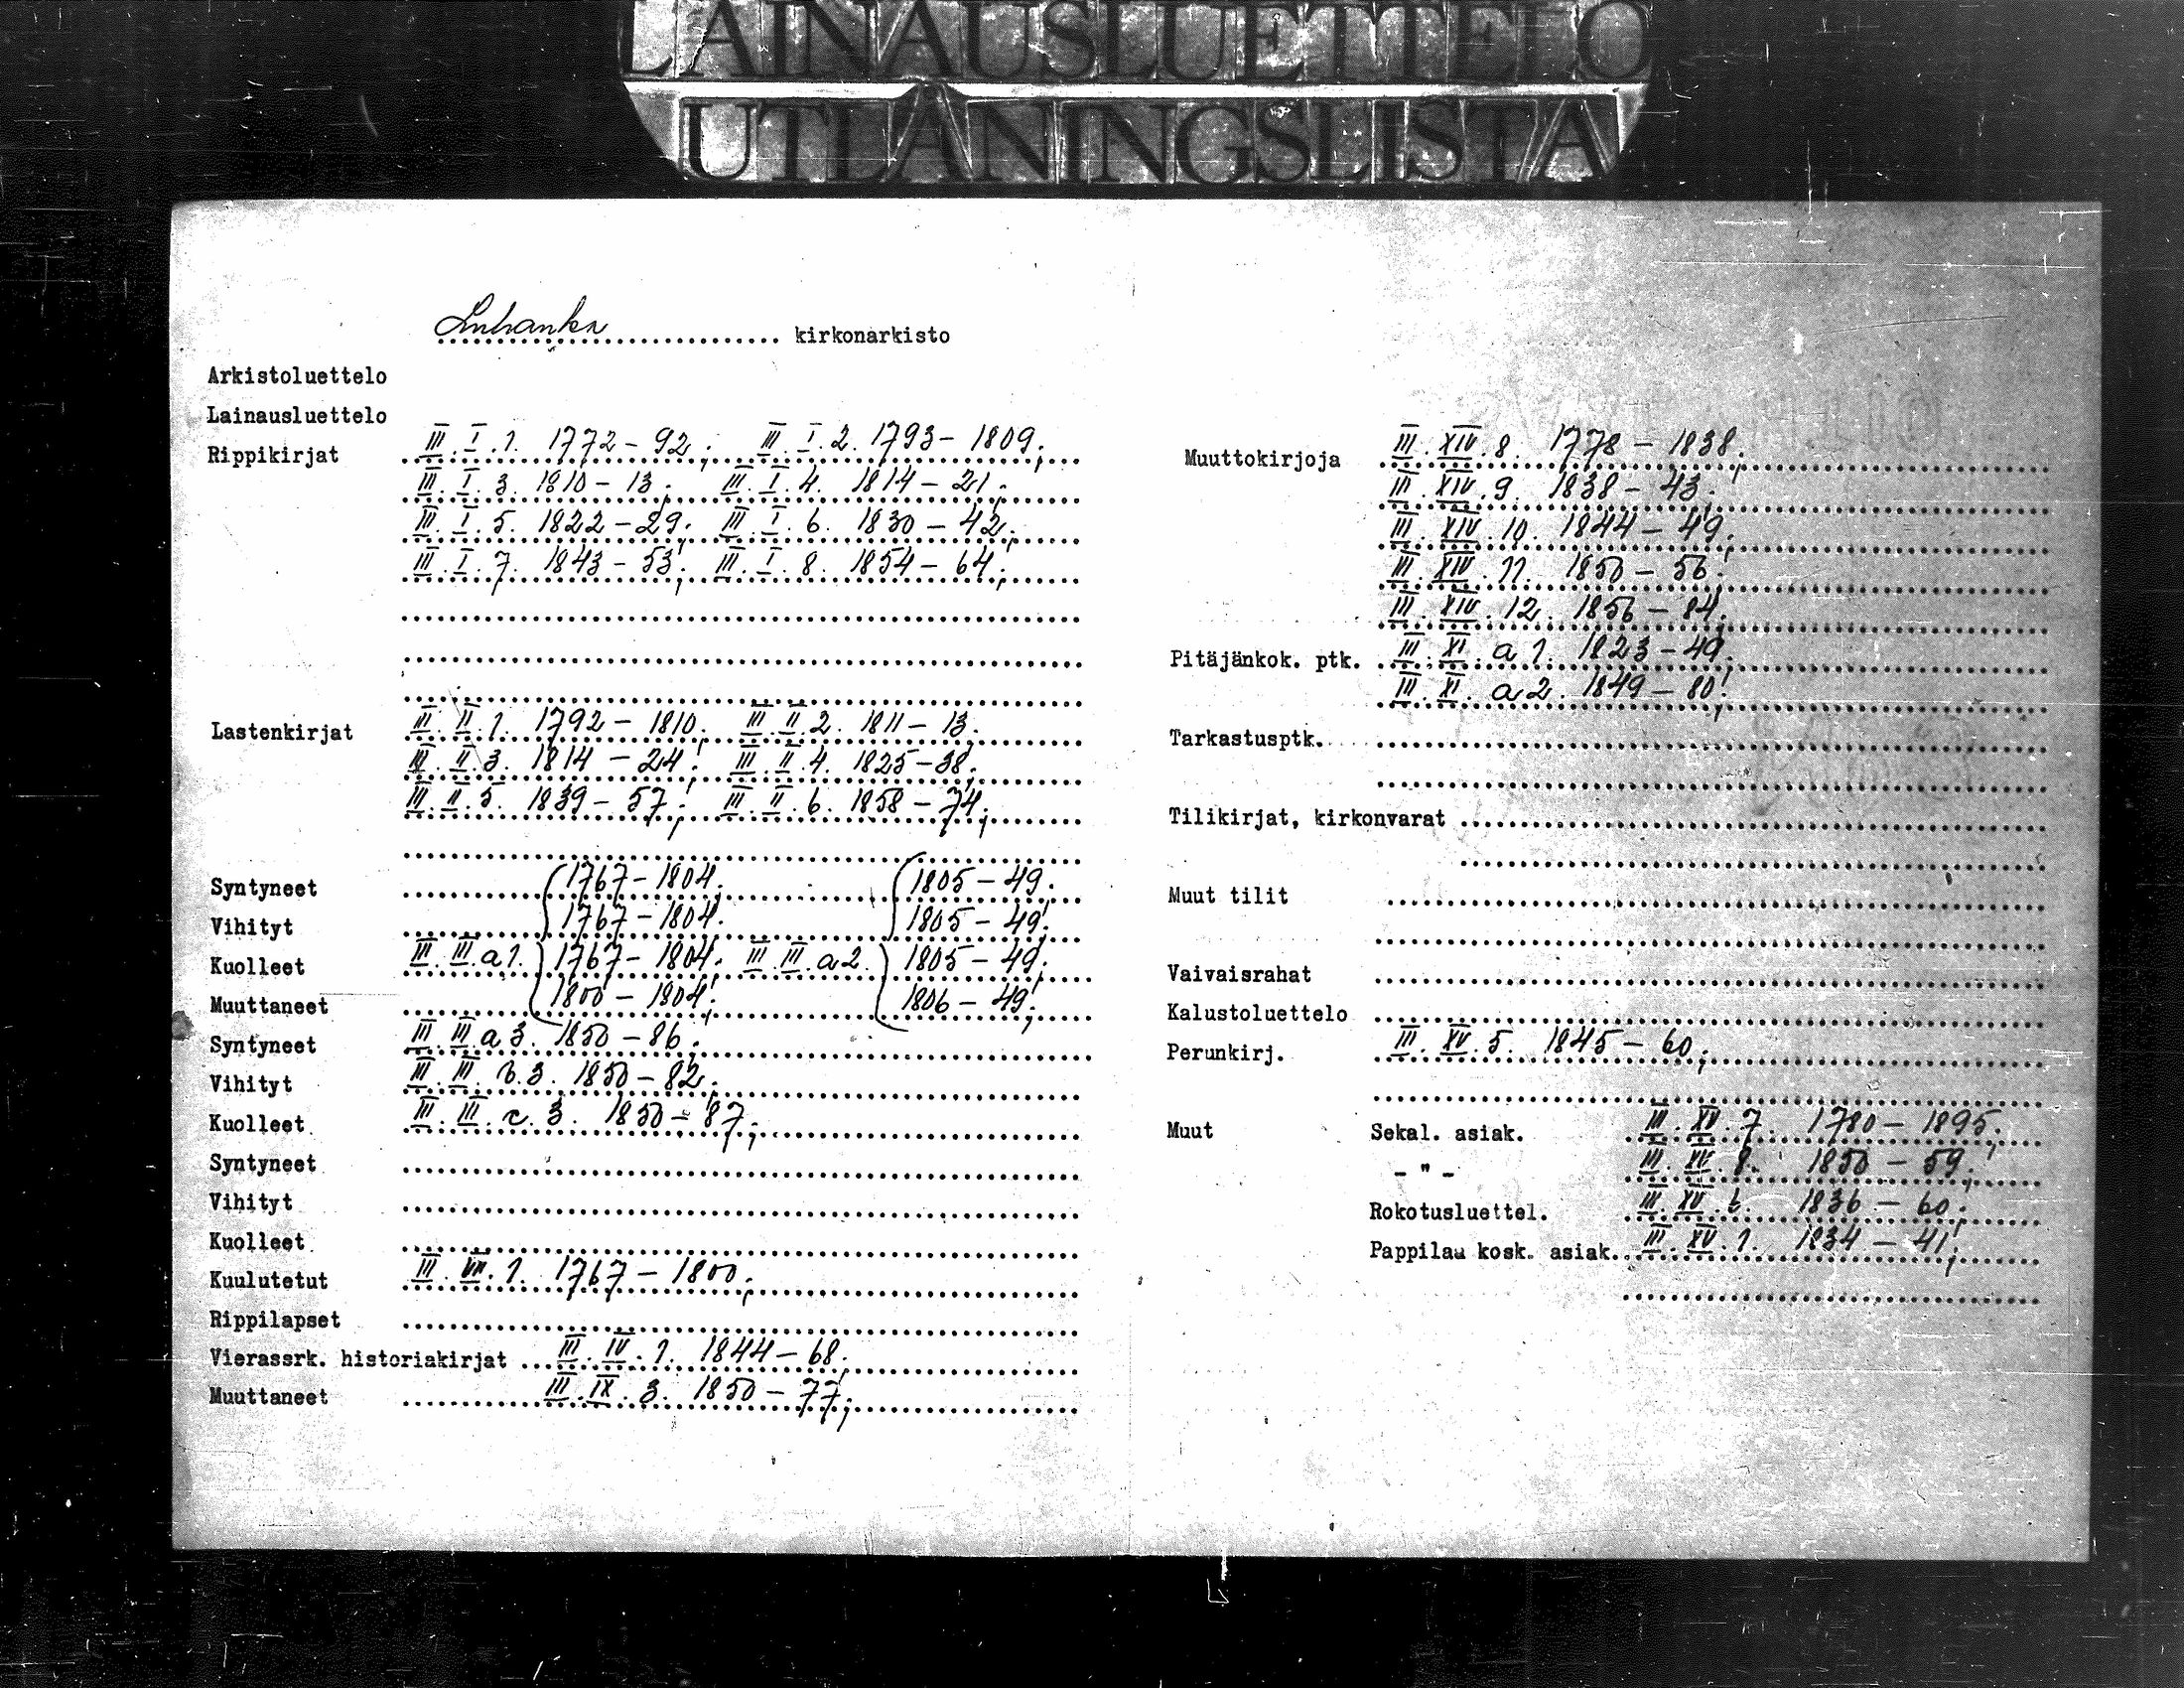 LAINAUSLUETTELO
UTLÅNINGSLISTA
Luhanka kirkonarkisto
Arkistoluettelo
Lainausluettelo
Rippikirjat III. I. 1. 1772 - 92; III. I. 2. 1793 - 1809;
III. I. 3. 1810 - 13; III. I. 4. 1814 - 21;
III. I. 5. 1822 - 29; III. I. 6. 1830 - 42;
III. I. 7. 1843 - 53; III. I. 8. 1854 - 64;
Lastenkirjat III. II. 1. 1792 - 1810; III. II. 2. 1811 - 13;
III. II. 3. 1814 - 24; III. II. 4. 1825 - 38;
III. II. 5. 1839 - 57; III. II. 6. 1858 - 74;
Syntyneet 1767 - 1804; 1805 - 49;
Vihityt 1767 - 1804; 1805 - 49;
Kuolleet III. III. a 1. 1767 - 1804; III. III. a 2. 1805 - 49;
Muuttaneet 1800 - 1804; 1806 - 49;
Syntyneet III. III. a 3. 1850 - 86;
Vihityt III. III. b. 3. 1850 - 82;
Kuolleet III. III. c. 3. 1850 - 87;
Syntyneet
Vihityt
Kuolleet
Kuulutetut III. VII. 1. 1767 - 1800;
Rippilapset
Vierassrk. historiakirjat III. IV. 1. 1844 - 68;
Muuttaneet III. IX. 3. 1850 - 77;
Muuttokirjoja III. XIV. 8. 1778 - 1838;
III. XIV. 9. 1838 - 43;
III. XIV. 10. 1844 - 49;
III. XIV. 11. 1850 - 56;
III. XIV. 12. 1856 - 84;
Pitäjänkok. ptk. III. XI. a 1. 1823 - 49;
III. XI. a 2. 1849 - 80;
Tarkastusptk.
Tilikirjat, kirkonvarat
Muut tilit
Vaivaisrahat
Kalustoluettelo
Perunkirj. III. XV. 5. 1845 - 60;
Muut Sekal. asiak. III. XV. 7. 1780 - 1895;
- " - III. XV. 8. 1850 - 59;
Rokotusluettel. III. XV. 6. 1836 - 60;
Pappilaa kosk. asiak. III. XV. 1. 1834 - 41;